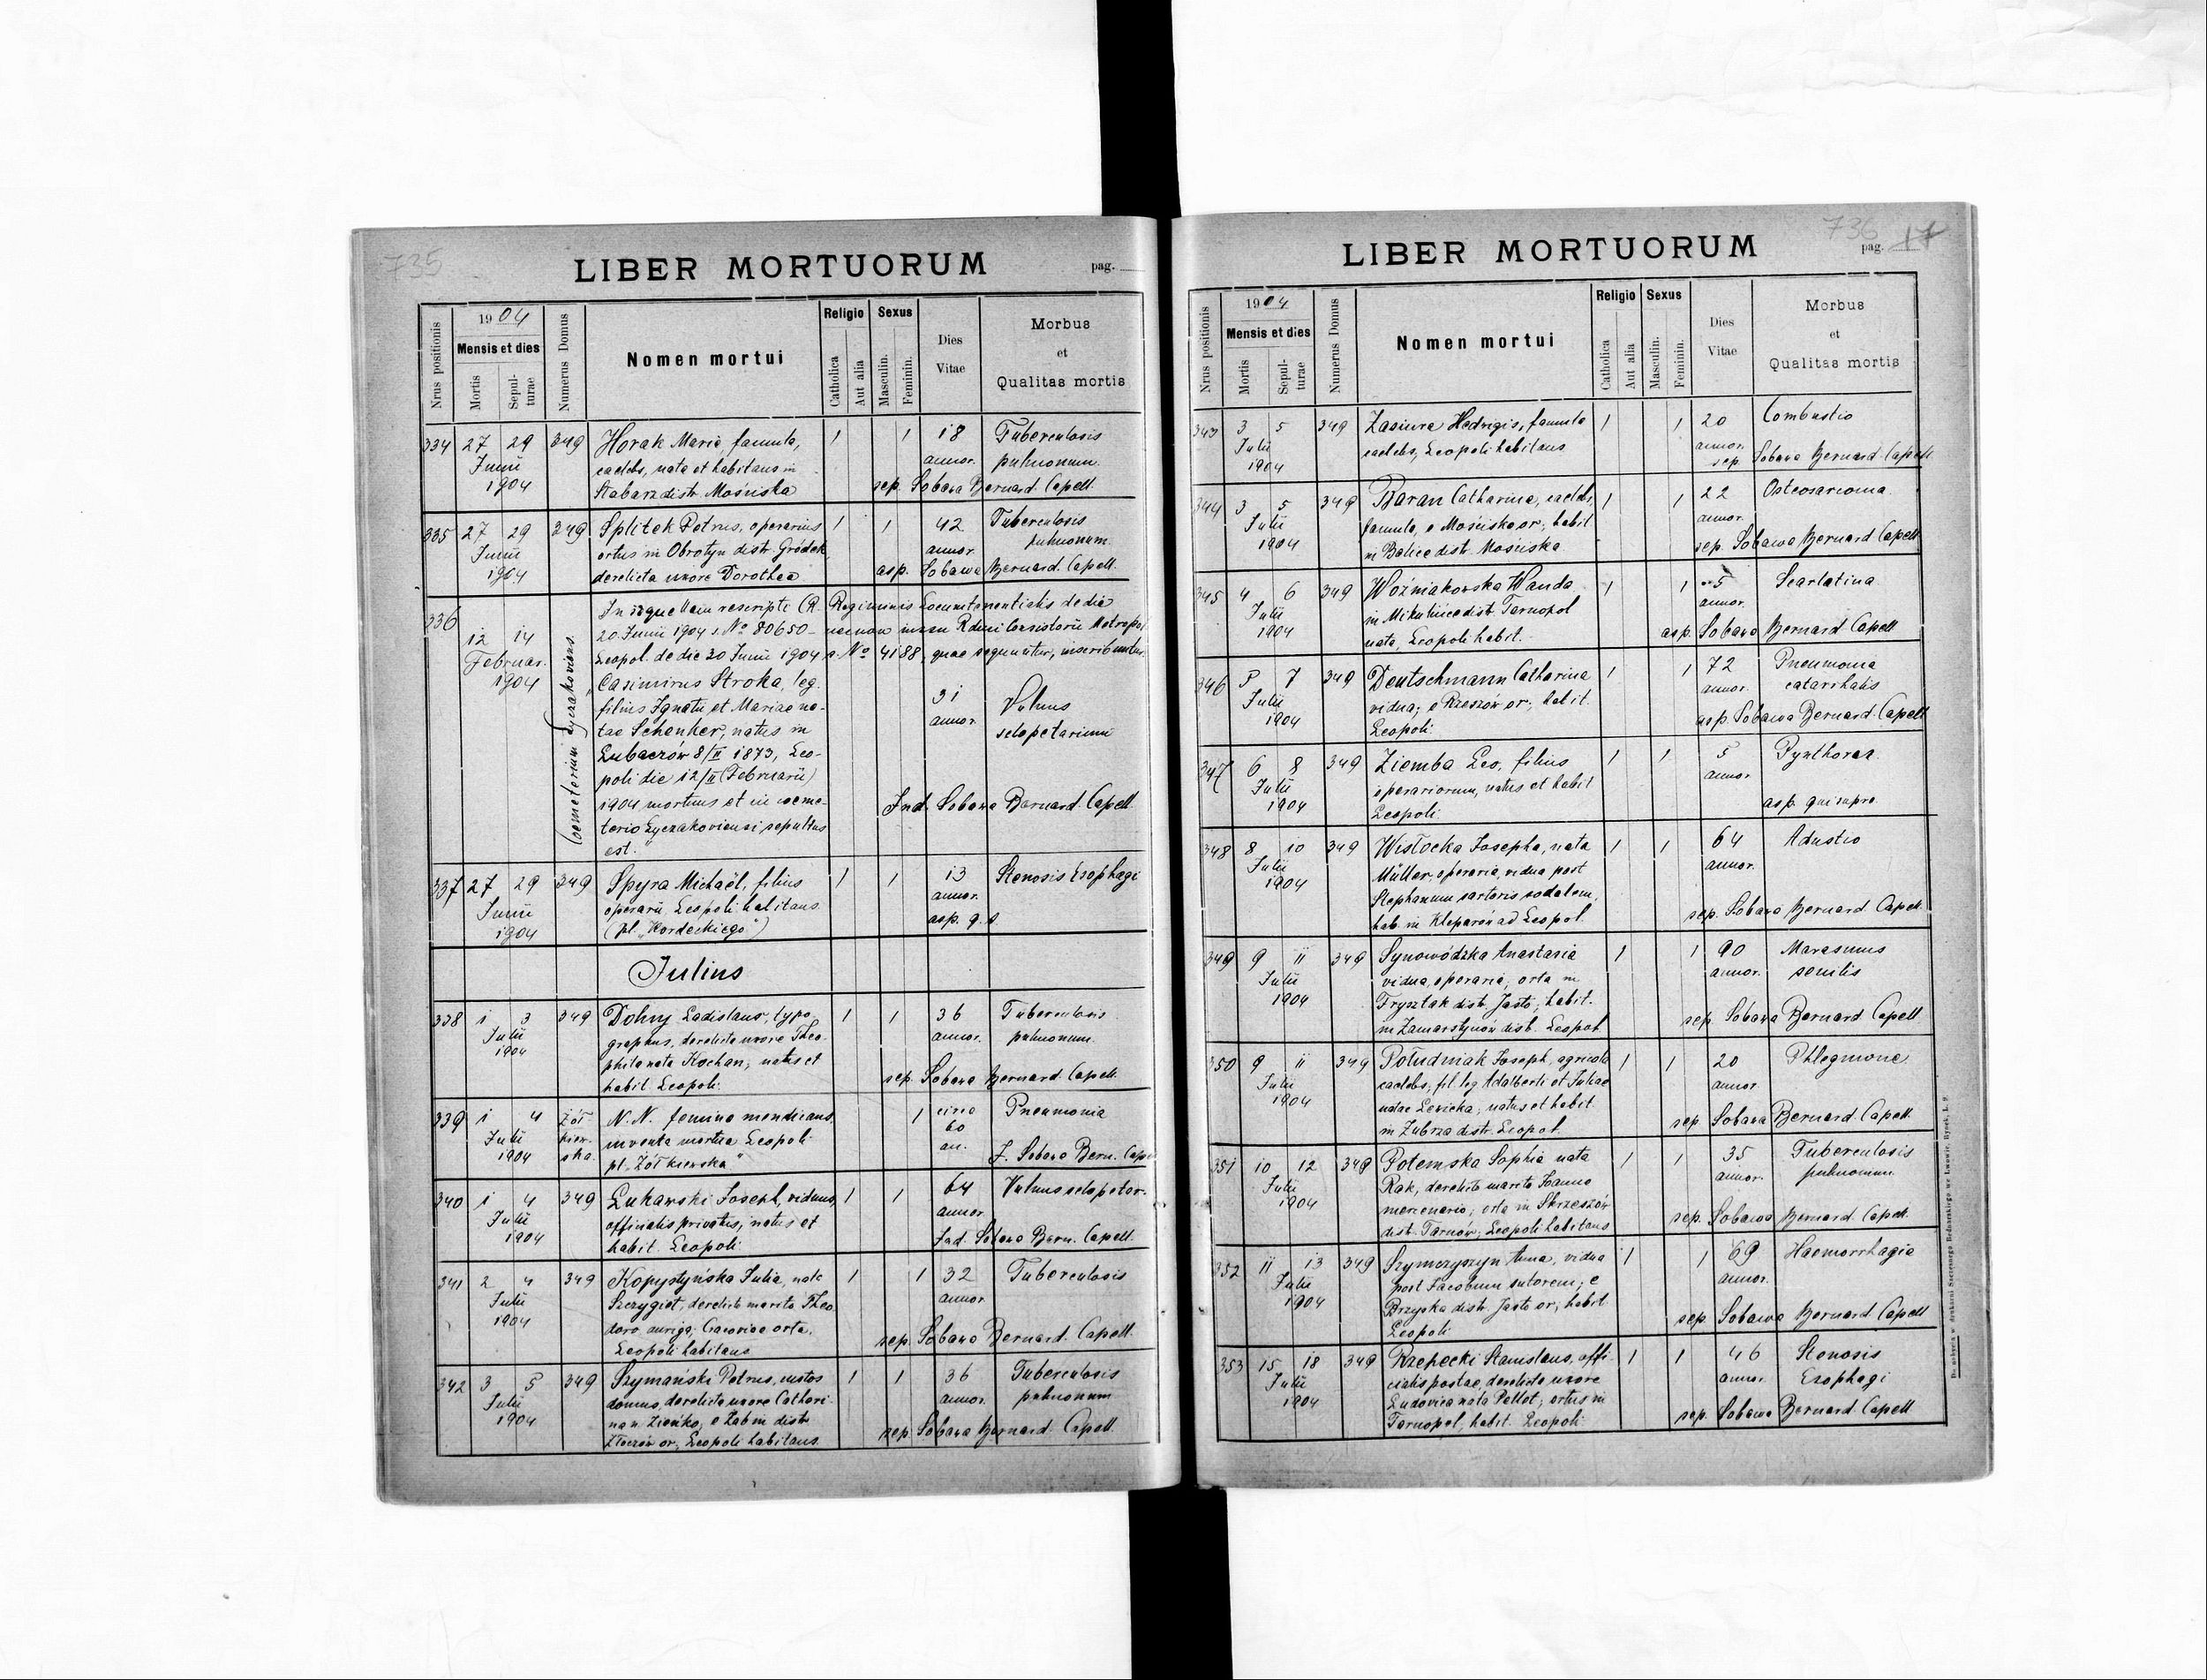 735
LIBER MORTUORUM
pag.
Nrus positionis
1904
Mensis et dies
Mortis
Sepulturae
Numerus Domus
Nomen mortui
Religio
Catholica
Aut alia
Sexus
Masculin.
Feminin.
Dies
Vitae
Morbus
et
Qualitas mortis
334 27 29 349 Horak Maria, famula, 1 1 18 Tuberculosis
Junii caelebs, nata et habitans in annor. pulmonum.
1904 distr. Mościska sep. Sobawa Bernard. Capell.
335 27 29 349 Splitek Petrus, operarius 1 1 42 Tuberculosis
Junii ortus in Obrotyn distr. Gródek, annor. pulmonum
1904 derelicta uxore Dorothea asp. Sobawa Bernard. Capell.
336 In sequellam rescripti C. R. Regiminis Locumtenentialis de die
12 14 20 Junii 1904 s. No 80650 – necnon iussu Rdmi Consistorii Metropol.
Februar. Leopol. de die 30 Junii 1904 s. No 4188, quae sequuntur, inscribuntur:
1904 "Casimirus Stroka, leg.
Coemeterium Lyczakoviens.
filius Ignatii et Mariae na- 31 Vulnus
tae Schenker, natus in annor. sclopetarium
Lubaczów 8/II 1873, Leo-
poli die 12/II (Februarii)
1904 mortuus et in coeme- Ind. Sobawa Bernard. Capell.
terio Lyczakoviensi sepultus
est."
337 27 29 349 Spyra Michaël, filius 1 1 13 Stenosis Esophagi
Junii operarii Leopoli habitans annor.
1904 (pl. "Kordeckiego") asp. q. s.
Julius
338 1 3 349 Dolny Ladislaus, typo- 1 1 36 Tuberculosis
Julii graphus, derelicta uxore Theo- annor. pulmonum.
1904 phila nata Kochan, natus et
habit. Leopoli. sep. Sobawa Bernard. Capell.
339 1 4 Żół- N. N. femina mendicans 1 circa Pneumonia
Julii kiew- inventa mortua Leopoli 60
1904 ska. pl. "Żółkiewska" an. J. Sobawa Bern. Capell
340 1 4 349 Łukawski Joseph, viduus, 1 1 64 Vulnus sclopetar.
Julii officialis privatus, natus et annor.
1904 habit. Leopoli. Ind. Sobawa Bern. Capell.
341 2 4 349 Kopystyńska Julia, nata 1 1 32 Tuberculosis
Julii Szczygieł, derelicto marito Theo- annor.
1904 doro, auriga; Cracoviae orta,
Leopoli habitans sep. Sobawa Bernard. Capell.
342 3 5 349 Szymański Petrus, custos 1 1 36 Tuberculosis
Julii domus, derelicta uxore Cathari- annor. pulmonum
1904 na n. Zieńko, e distr.
Złoczów or., Leopoli habitans. sep. Sobawa Bernard. Capell.
736
LIBER MORTUORUM
pag. 17
Nrus positionis
1904
Mensis et dies
Mortis
Sepulturae
Numerus Domus
Nomen mortui
Religio
Catholica
Aut alia
Sexus
Masculin.
Feminin.
Dies
Vitae
Morbus
et
Qualitas mortis
343 3 5 349 Zasiura Hedvigis, famula 1 1 20 Combustio
Julii caelebs, Leopoli habitans annor.
1904 sep. Sobawa Bernard. Capell.
344 3 5 349 Baran Catharina, caelebs, 1 1 22 Osteosarcoma
Julii famula, e Mościska or., habit. annor.
1904 in Balice distr. Mościska sep. Sobawa Bernard. Capell
345 4 6 349 Woźniakowska Wanda 1 1 5 Scarlatina
Julii in Mikulińce distr. Tarnopol annor.
1904 nata, Leopoli habit. asp. Sobawa Bernard. Capell
346 5 7 349 Deutschmann Catharina 1 1 72 Pneumonia
Julii vidua; e Rzeszów or., habit. annor. catarrhalis
1904 Leopoli. asp. Sobawa Bernard. Capell
347 6 8 349 Ziemba Leo, filius 1 1 5 Pyothorax
Julii operariorum, natus et habit annor.
1904 Leopoli. asp. qui supra
348 8 10 349 Wisłocka Josepha, nata 1 1 64 Adustio
Julii Müller, operaria, vidua post annor.
1904 Stephanum sartoris sodalem,
hab. in Kleparów ad Leopol. sep. Sobawa Bernard. Capell.
349 9 11 349 Synowódzka Anastasia 1 1 90 Marasmus
Julii vidua, operaria, orta in annor. senilis
1904 Frysztak distr. Jasło; habit.
in Zamarstynów distr. Leopol. sep. Sobawa Bernard Capell
350 9 11 349 Południak Joseph, agricola 1 1 20 Phlegmone
Julii caelebs, fil. leg. Adalberti et Juliae annor
1904 natae Lewicka; natus et habit.
in Zubrza distr. Leopol. sep. Sobawa Bernard. Capell.
351 10 12 349 Potemska Sophia nata 1 1 35 Tuberculosis
Julii Rak, derelicto marito Joanne annor. pulmonum
1904 mercenario; orta in Skrzeszów
distr. Tarnów, Leopoli habitans sep. Sobawa Bernard. Capell.
352 11 13 349 Szymczyszyn Anna, vidua 1 1 69 Haemorrhagia
Julii post Jacobum sutorem; e annor.
1904 Brzyska distr. Jasło or., habit.
Leopoli sep. Sobawa Bernard Capell
353 15 18 349 Rzepecki Stanislaus, offi- 1 1 46 Stenosis
Julii cialis postae, derelicta uxore annor. Esophagi
1904 Ludovica nata Pellet; ortus in
Tarnopol, habit. Leopoli. sep. Sobawa Bernard Capell
Do nabycia w drukarni Szczęsnego Bednarskiego we Lwowie, Rynek, l. 9.